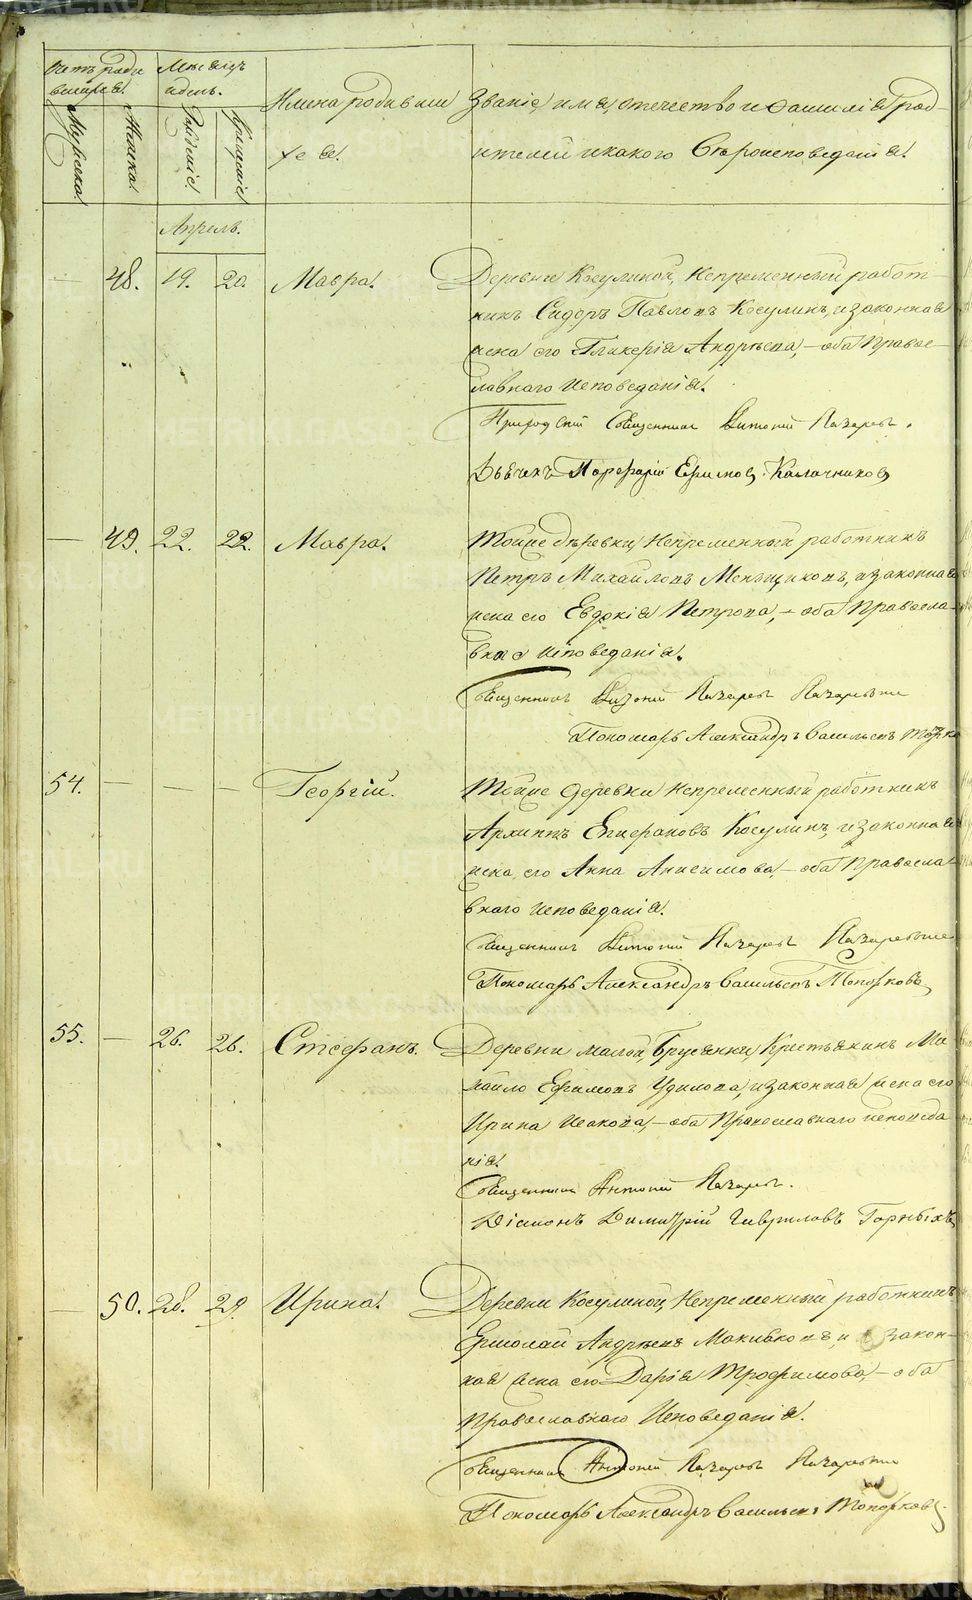 Счетъ роди
вшихся.
Мѣсяцъ
и день.
Имена родивши
хся.
Званіе, имя, отечество и фамилія род-
ителей и какого Вѣроисповеданія.
Мужеска.
Женска.
Рожденіе.
Крещеніе.
Апрель.
— 48. 19. 20. Мавра.
Деревни Косулиной, Непременный работ-
никъ Сидоръ Павловъ Косулинъ, и законная
жена его Гликерія Андрѣева, — оба Правос-
лавнаго исповеданія.
Приходскій Священникъ Антоній Лазаревъ.
Дьячекъ Порфирій Ефимовъ Калачниковъ
— 49. 22. 22. Мавра.
Тойже деревни, Непременный работникъ
Петръ Михайловъ Меньщиковъ, и законная
жена его Евдокія Петрова, — оба Правосла-
внаго исповеданія.
Священникъ Антоній Лазаревъ
Пономарь Александръ Васильевъ
54. — — — Георгій.
Тойже деревни Непременный работникъ
Архипъ Епифановъ Косулинъ, и законная
жена, его Анна Анисимова, — оба Правосла-
внаго исповеданія.
Священникъ Антоній Лазаревъ
Пономарь Александръ Васильевъ Топорковъ
55. — 26. 26. Стефанъ.
Деревни Малой, Брусянки, Крестьянинъ Ми-
хайло Ефимовъ Удилова, и законная жена его
Ирина Исакова, — оба Православнаго исповеда
нія.
Священникъ Антоній Лазаревъ.
Діаконъ Димитрій Гавриловъ Горныхъ
— 50. 28. 29. Ирина.
Деревни Косулиной, Непременный работникъ
Ермолай Андрѣевъ и закон-
ная жена его Дарія Трофимова, — оба
Православнаго Исповеданія.
Священникъ Антоній Лазаревъ
Пономарь Александръ Васильевъ Топорковъ.